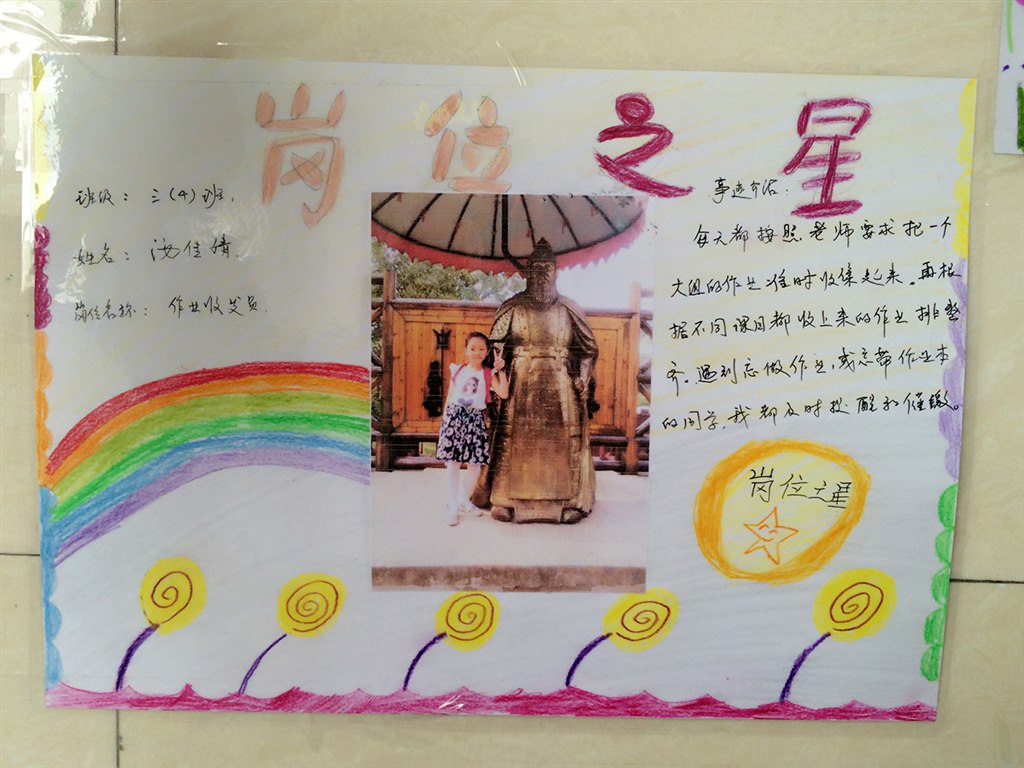 岗位之星
班级：三(4)班.
姓名：汤佳婧.
岗位名称：作业收发员.
事迹介绍：
每天都按照老师要求把一个
大组的作业准时收集起来.再根
据不同课目都收上来的作业排整
齐.遇到忘做作业,或忘带作业本
的同学,我都及时提醒和催缴。
岗位之星